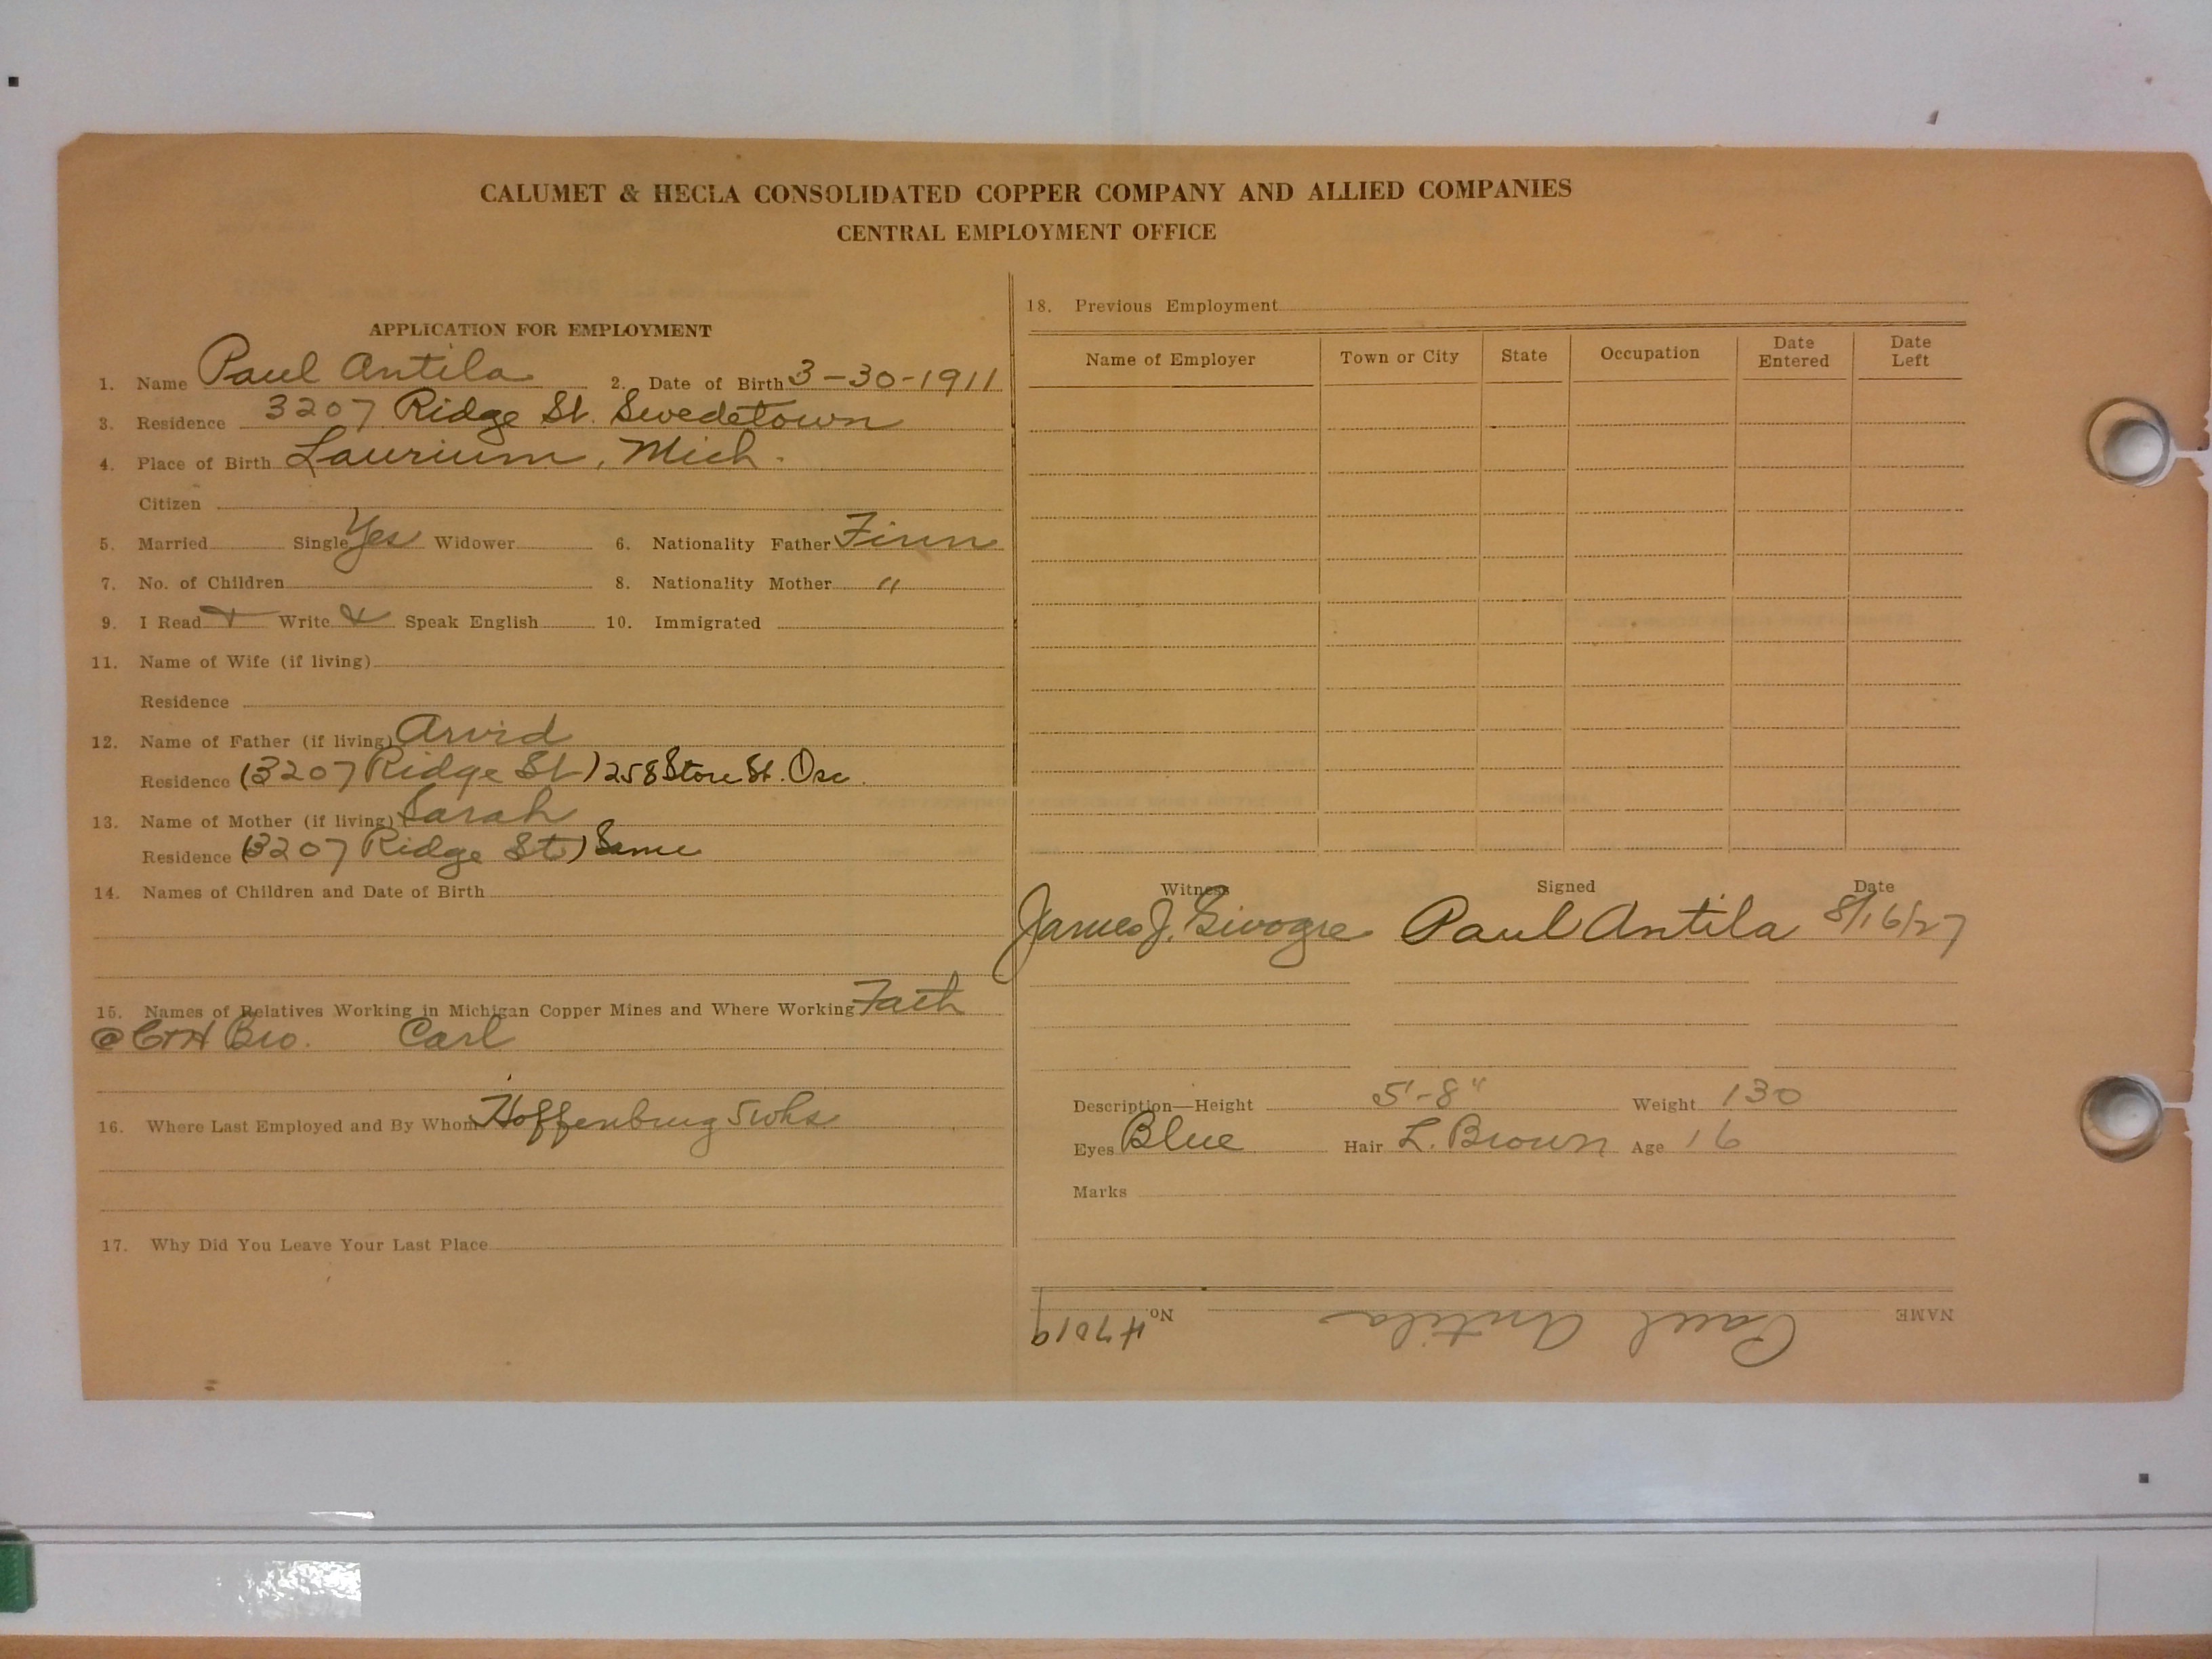 CALUMET & HECLA CONSOLIDATED COPPER COMPANY AND ALLIED COMPANIES
CENTRAL EMPLOYMENT OFFICE
APPLICATION FOR EMPLOYMENT
1. Name Paul Antila 2. Date of Birth 3-30-1911
3. Residence 3207 Ridge St. Swedetown
4. Place of Birth Laurium, Mich.
Citizen
5. Married Single Yes Widower 6. Nationality Father Finn
7. No. of Children 8. Nationality Mother "
9. I Read & Write & Speak English 10. Immigrated
11. Name of Wife (if living)
Residence
12. Name of Father (if living) Arvid
Residence (3207 Ridge St) 258 Stone St. Osc.
13. Name of Mother (if living) Sarah
Residence (3207 Ridge St) Same
14. Names of Children and Date of Birth
15. Names of Relatives Working in Michigan Copper Mines and Where Working Fath
@ C+H Bro. Carl
16. Where Last Employed and By Whom
17. Why Did You Leave Your Last Place
18. Previous Employment
Name of Employer Town or City State Occupation Date Entered Date Left
Witness Signed Date
James J. Paul Antila 8/16/27
Description—Height 5'-8" Weight 130
Eyes Blue Hair L. Brown Age 16
Marks
NAME Paul Antila No. 47019